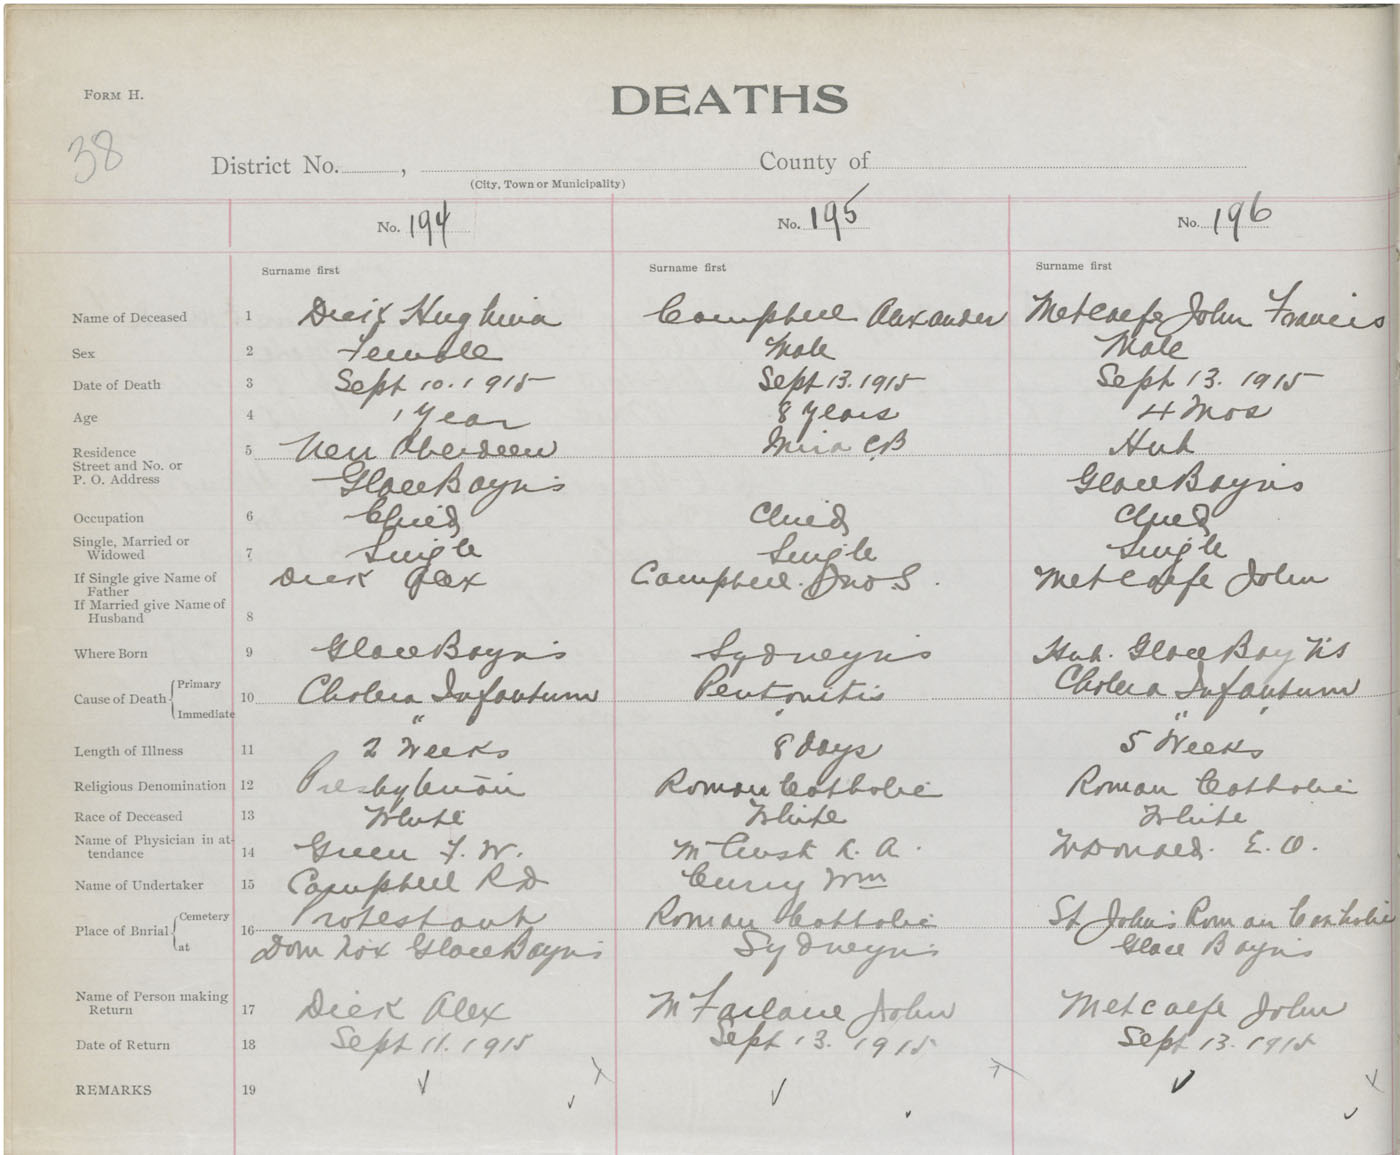 FORM H.
DEATHS
38
District No. , County of
(City, Town or Municipality)
No. 194 No. 195 No. 196
Surname first Surname first Surname first
Name of Deceased 1 Dick Hughina Campbell Alexander Metcalfe John Francis
Sex 2 Female Male Male
Date of Death 3 Sept 10. 1915 Sept 13. 1915 Sept 13. 1915
Age 4 1 Year 8 Years 4 Mos
Residence 5 New Aberdeen Mira CB Hub
Street and No. or
P. O. Address Glace Bay NS Glace Bay NS
Occupation 6 Child Child Child
Single, Married or
Widowed 7 Single Single Single
If Single give Name of Dick Alex Campbell. Jno S. Metcalfe John
Father
If Married give Name of
Husband 8
Where Born 9 Glace Bay NS Sydney NS Hub. Glace Bay NS
Cause of Death Primary 10 Cholera Infantum Peritonitis Cholera Infantum
Immediate " " "
Length of Illness 11 2 Weeks 8 Days 5 Weeks
Religious Denomination 12 Presbyterian Roman Catholic Roman Catholic
Race of Deceased 13 White White White
Name of Physician in at-
tendance 14 Green F. W. McCuish R. A. McDonald. E. O.
Name of Undertaker 15 Campbell RD Curry Wm
Place of Burial Cemetery 16 Protestant Roman Catholic St John's Roman Catholic
at Dom No X Glace Bay NS Sydney NS Glace Bay NS
Name of Person making
Return 17 Dick Alex McFarlane John Metcalfe John
Date of Return 18 Sept 11. 1915 Sept 13. 1915 Sept 13. 1915
REMARKS 19